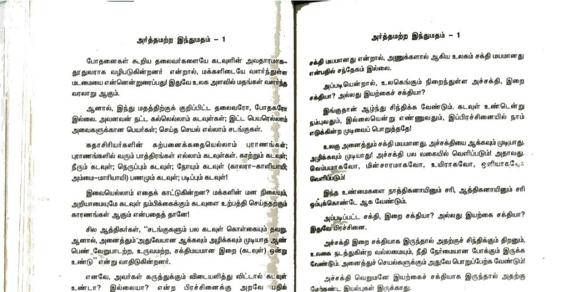 அர்த்தமற்ற இந்துமதம் - 1
போதனைகள் கூறிய தலைவர்களையே கடவுளின் அவதாரமாக-
தூதுவராக வழிபடுகின்றனர் என்றால், மக்களிடையே வளர்ந்துள்ள
மடமையை என்னென்றுரைப்பது! இதுவே உலக அளவில் மதங்கள் வளர்ந்த
வரலாறு ஆகும்.
ஆனால், இந்து மதத்திற்குக் குறிப்பிட்ட தலைவரோ, போதகரோ
இல்லை. அவனவன் நட்ட கல்லெல்லாம் கடவுள்கள்; இட்ட பெயரெல்லாம்
அவைகளுக்கான பெயர்கள்; செய்த செயல் எல்லாம் சடங்குகள்.
கதாசிரியர்களின் கற்பனைக்கதையெல்லாம் புராணங்கள்;
புராணங்களில் வரும் பாத்திரங்கள் எல்லாம் கடவுள்கள்; காற்றும் கடவுள்;
நீரும் கடவுள்; நெருப்பும் கடவுள்; நோயும் கடவுள் (காலரா-காளியாயி;
அம்மை-மாரியாயி) பணமும் கடவுள்; படிப்பும் கடவுள்!
இவையெல்லாம் எதைக் காட்டுகின்றன? மக்களின் மன நிலையும்,
அறியாமையுமே கடவுள் நம்பிக்கைக்கும் கடவுளை உற்பத்தி செய்ததற்கும்
காரணங்கள் ஆகும் என்பதைத் தானே!
சில ஆத்திகர்கள், "சடங்குகளும் பல கடவுள் கொள்கையும் தவறு.
ஆனால், அனைத்தும் அதுவேயான ஆக்கவும் அழிக்கவும் முடியாத ஆண்
பெண் வேறுபாடற்ற, உருவமற்ற, சக்திமயமான இறை (கடவுள்) ஒன்று
உண்டு" என்று வாதிடுகின்றனர்.
எனவே, அவர்கள் கருத்துக்கும் விடையளித்து விட்டால் கடவுள்
உண்டா? இல்லையா? என்ற பிரச்சினைக்கு அறவே பதில்
அர்த்தமற்ற இந்துமதம் - 1
சக்தி மயமானது என்றால், அணுக்களால் ஆகிய உலகம் சக்தி மயமானது
என்பதில் சந்தேகம் இல்லை.
அப்படியென்றால், உலகெங்கும் நிறைந்துள்ள அச்சக்தி, இறை
சக்தியா? அல்லது இயற்கைச் சக்தியா?
இங்குதான் ஆழ்ந்து சிந்திக்க வேண்டும். கடவுள் உண்டென்று
நம்புவதும், இல்லையென்று எண்ணுவதும், இப்பிரச்சினையில் நாம்
எடுக்கின்ற முடிவைப் பொறுத்ததே!
உலகு அனைத்தும் சக்திமயமானது. அச்சக்தியை ஆக்கவும் முடியாது.
அழிக்கவும் முடியாது! அச்சக்தி பல வகையில் வெளிப்படும்! அதாவது,
வெம்பமாகவோ, மின்சாரமாகவோ, உயிராகவோ, ஒளியாகவோ
வெளிப்படும்!
இந்த உண்மைகளை நாத்திகனாயினும் சரி, ஆத்திகனாயினும் சரி
ஒப்புக்கொண்டே ஆக வேண்டும்.
அப்படிப்பட்ட சக்தி, இறை சக்தியா? அல்லது இயற்கை சக்தியா?
இதுவே பிரச்சினை.
அச்சக்தி இறை சக்தியாக இருந்தால் அதற்குச் சிந்திக்கும் திறனும்,
உலகை நடத்துகின்ற வல்லமையும், நீதி நேர்மையான போக்கும் இருக்க
வேண்டும். அனைத்துச் செயல்களுக்கும் அதுவே பொறுப்பேற்க வேண்டும்!
அச்சக்தி வெறுமனே இயற்கைச் சக்தியாக இருந்தால் அதற்கு
மேற்கண்ட இயல்புகள் இருக்காது.